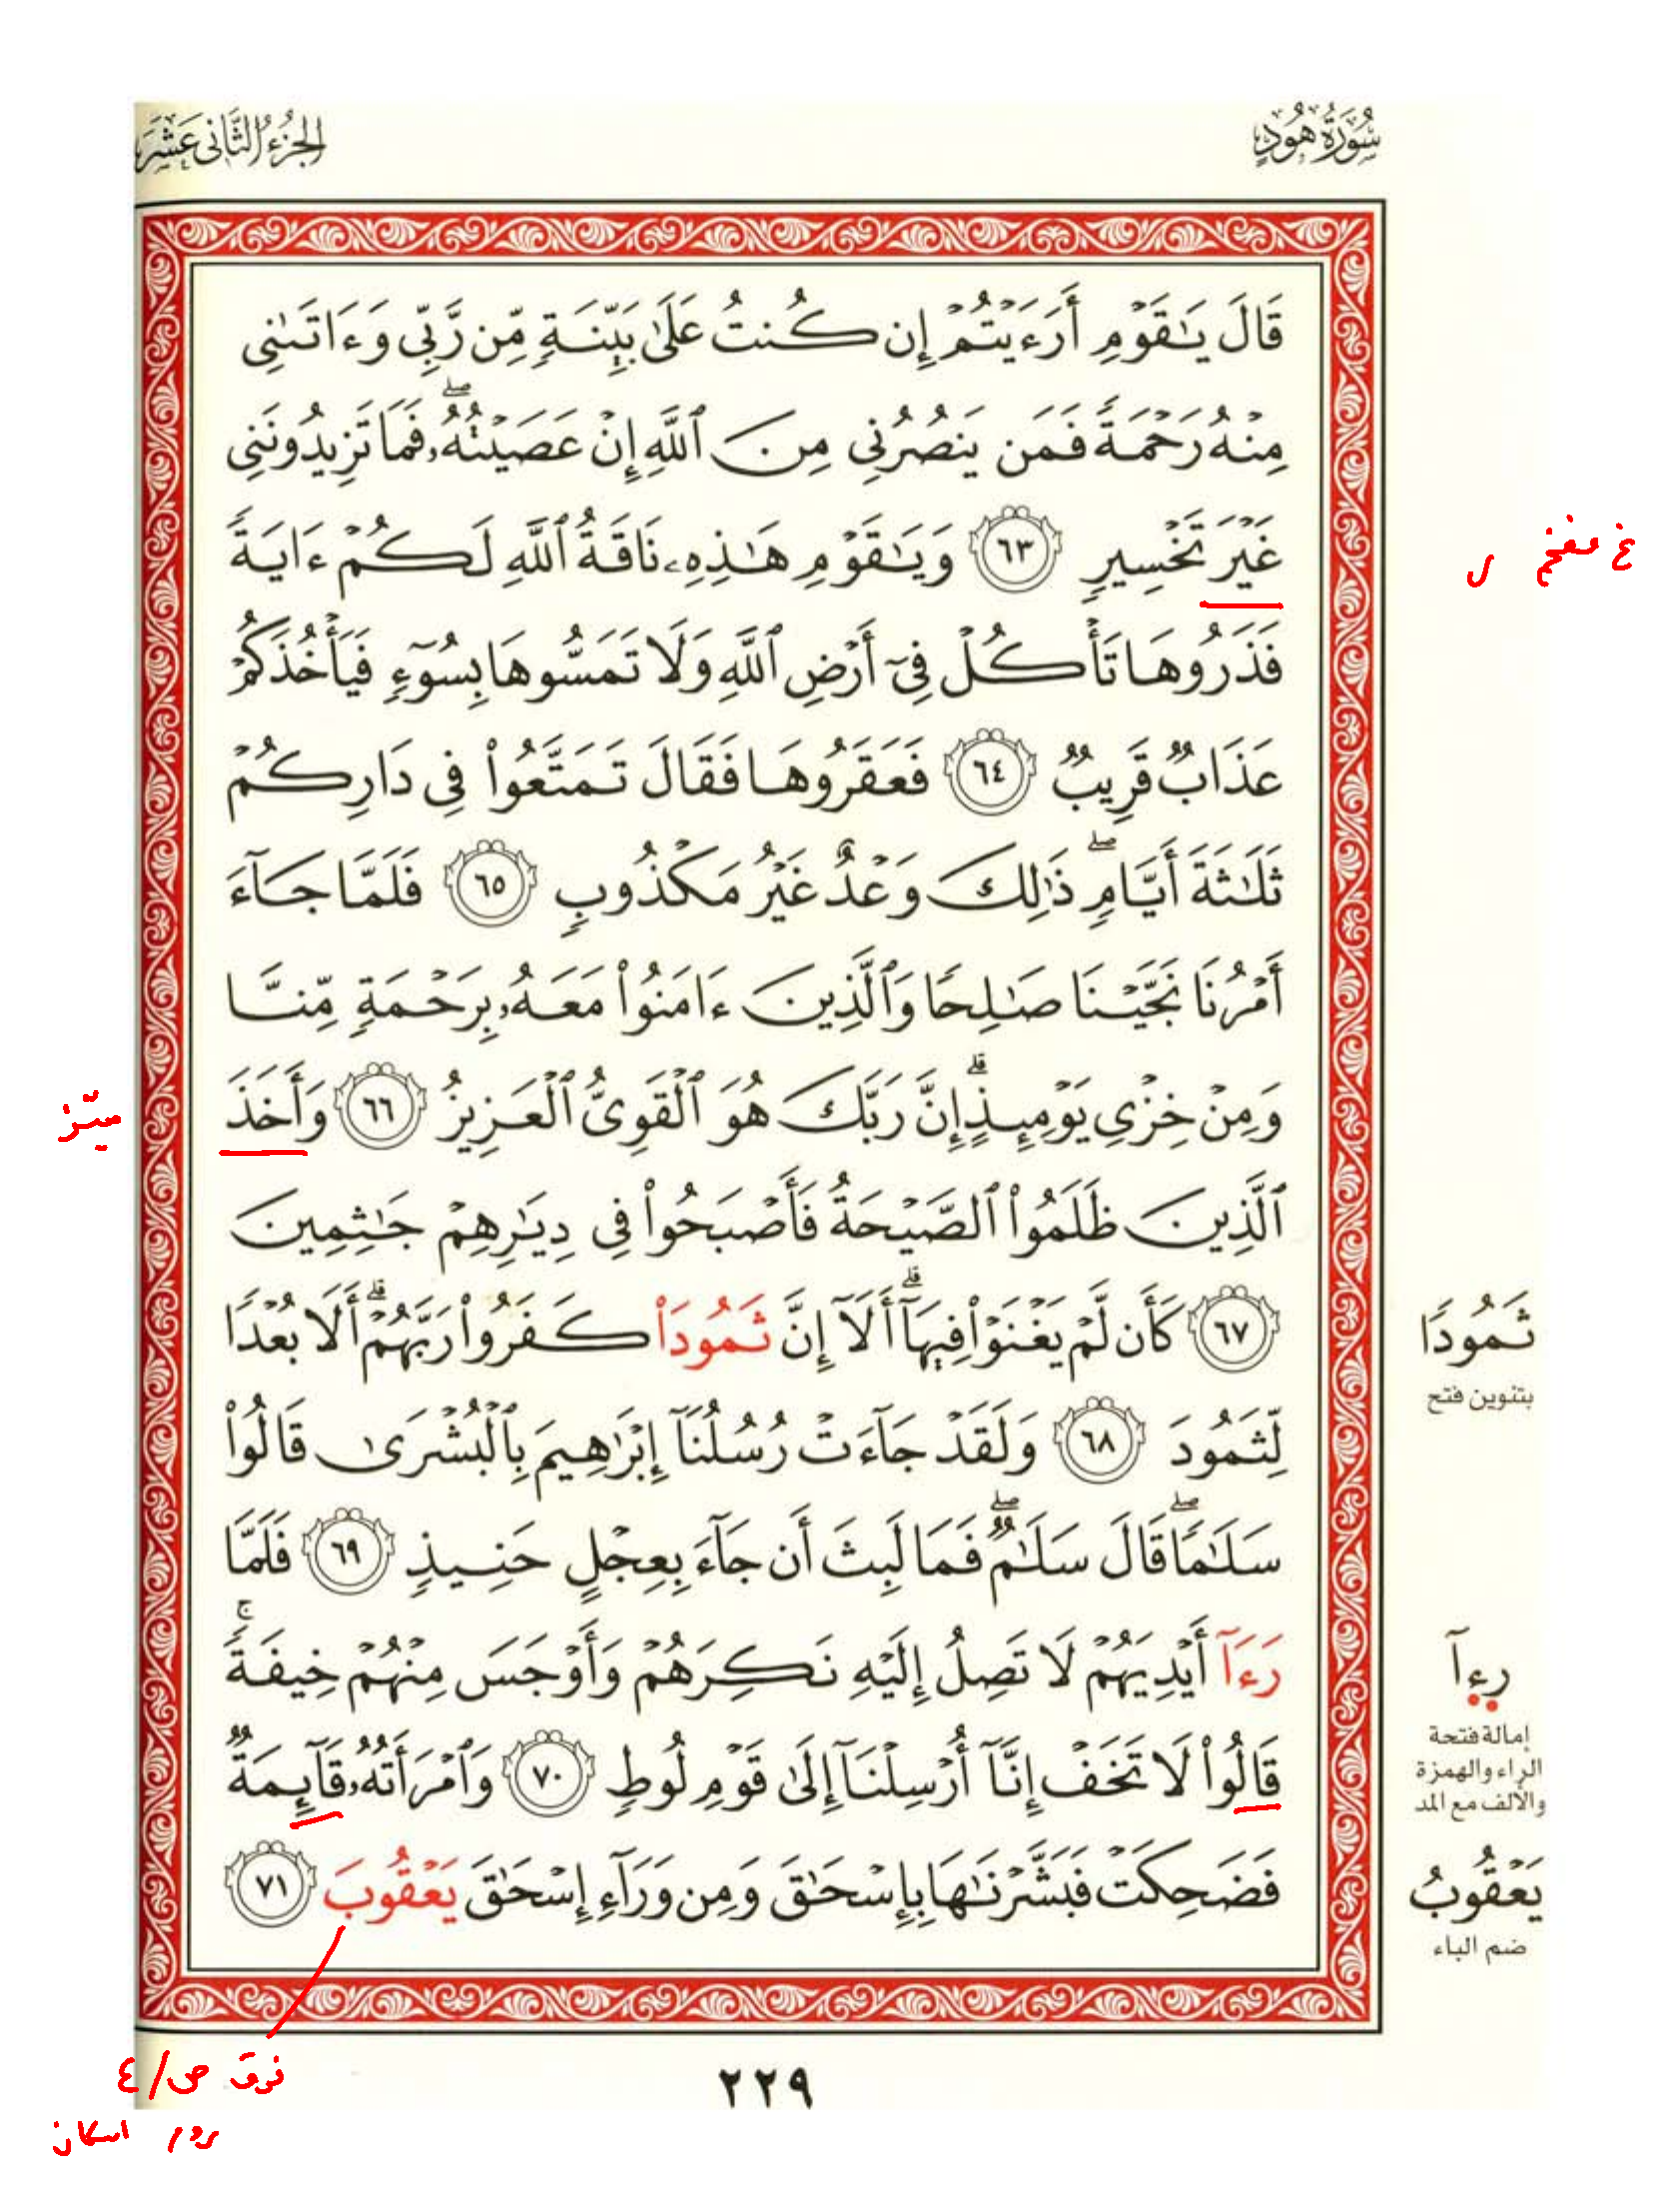 سُورَةُ هُودٍ
الجُزْءُ الثَّانِي عَشَرَ
قَالَ يَٰقَوْمِ أَرَءَيْتُمْ إِن كُنتُ عَلَىٰ بَيِّنَةٍ مِّن رَّبِّي وَءَاتَىٰنِي
مِنْهُ رَحْمَةً فَمَن يَنصُرُنِي مِنَ ٱللَّهِ إِنْ عَصَيْتُهُۥۖ فَمَا تَزِيدُونَنِي
غَيْرَ تَخْسِيرٍ ٦٣ وَيَٰقَوْمِ هَٰذِهِۦ نَاقَةُ ٱللَّهِ لَكُمْ ءَايَةً
غ مفخم
فَذَرُوهَا تَأْكُلْ فِيٓ أَرْضِ ٱللَّهِ وَلَا تَمَسُّوهَا بِسُوٓءٍ فَيَأْخُذَكُمْ
عَذَابٌ قَرِيبٌ ٦٤ فَعَقَرُوهَا فَقَالَ تَمَتَّعُوا۟ فِي دَارِكُمْ
ثَلَٰثَةَ أَيَّامٍۖ ذَٰلِكَ وَعْدٌ غَيْرُ مَكْذُوبٍ ٦٥ فَلَمَّا جَآءَ
أَمْرُنَا نَجَّيْنَا صَٰلِحًا وَٱلَّذِينَ ءَامَنُوا۟ مَعَهُۥ بِرَحْمَةٍ مِّنَّا
وَمِنْ خِزْيِ يَوْمِئِذٍۗ إِنَّ رَبَّكَ هُوَ ٱلْقَوِيُّ ٱلْعَزِيزُ ٦٦ وَأَخَذَ
ميّز
ٱلَّذِينَ ظَلَمُوا۟ ٱلصَّيْحَةُ فَأَصْبَحُوا۟ فِي دِيَٰرِهِمْ جَٰثِمِينَ
٦٧ كَأَن لَّمْ يَغْنَوْا۟ فِيهَآۗ أَلَآ إِنَّ ثَمُودَا۟ كَفَرُوا۟ رَبَّهُمْۗ أَلَا بُعْدًا
ثَمُودًا
بتنوين فتح
لِّثَمُودَ ٦٨ وَلَقَدْ جَآءَتْ رُسُلُنَآ إِبْرَٰهِيمَ بِٱلْبُشْرَىٰ قَالُوا۟
سَلَٰمًاۖ قَالَ سَلَٰمٌۖ فَمَا لَبِثَ أَن جَآءَ بِعِجْلٍ حَنِيذٍ ٦٩ فَلَمَّا
رَءَآ أَيْدِيَهُمْ لَا تَصِلُ إِلَيْهِ نَكِرَهُمْ وَأَوْجَسَ مِنْهُمْ خِيفَةًۚ
رءآ
إمالة فتحة
الراء والهمزة
والألف مع المد
قَالُوا۟ لَا تَخَفْ إِنَّآ أُرْسِلْنَآ إِلَىٰ قَوْمِ لُوطٍ ٧٠ وَٱمْرَأَتُهُۥ قَآئِمَةٌ
فَضَحِكَتْ فَبَشَّرْنَٰهَا بِإِسْحَٰقَ وَمِن وَرَآءِ إِسْحَٰقَ يَعْقُوبَ ٧١
يَعْقُوبُ
ضم الباء
فرق ص/٤
روم اسكان
٢٢٩